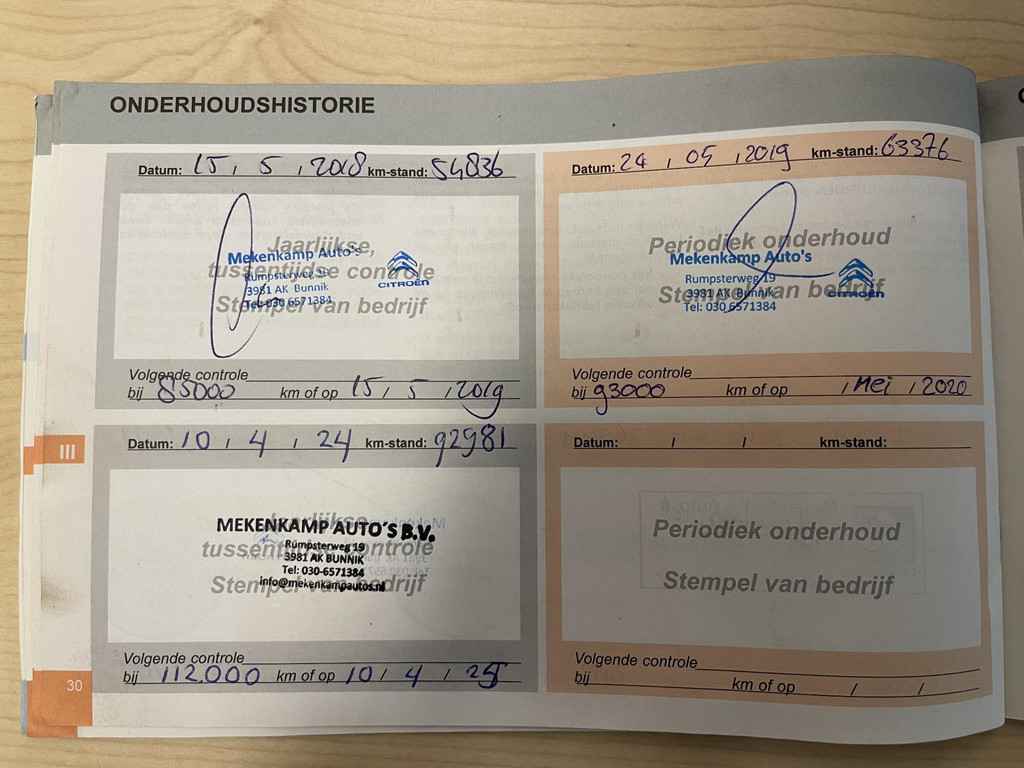 ONDERHOUDSHISTORIE
Datum: 15 / 5 / 2018 km-stand: 54836
Jaarlijkse,
tussentijdse controle
Stempel van bedrijf
Mekenkamp Auto's
Rumpsterweg 19
3981 AK Bunnik
Tel: 030 6571384
CITROËN
Volgende controle
bij 85000 km of op 15 / 5 / 2019
Datum: 24 / 05 / 2019 km-stand: 63376
Periodiek onderhoud
Stempel van bedrijf
Mekenkamp Auto's
Rumpsterweg 19
3981 AK Bunnik
Tel: 030 6571384
CITROËN
Volgende controle
bij 93000 km of op / Mei / 2020
Datum: 10 / 4 / 24 km-stand: 92981
Jaarlijkse
tussentijdse controle
Stempel van bedrijf
MEKENKAMP AUTO'S B.V.
Rumpsterweg 19
3981 AK BUNNIK
Tel: 030-6571384
info@mekenkampautos.nl
Volgende controle
bij 112.000 km of op 10 / 4 / 25
Datum: / / km-stand:
Periodiek onderhoud
Stempel van bedrijf
Volgende controle
bij km of op / /
III
30